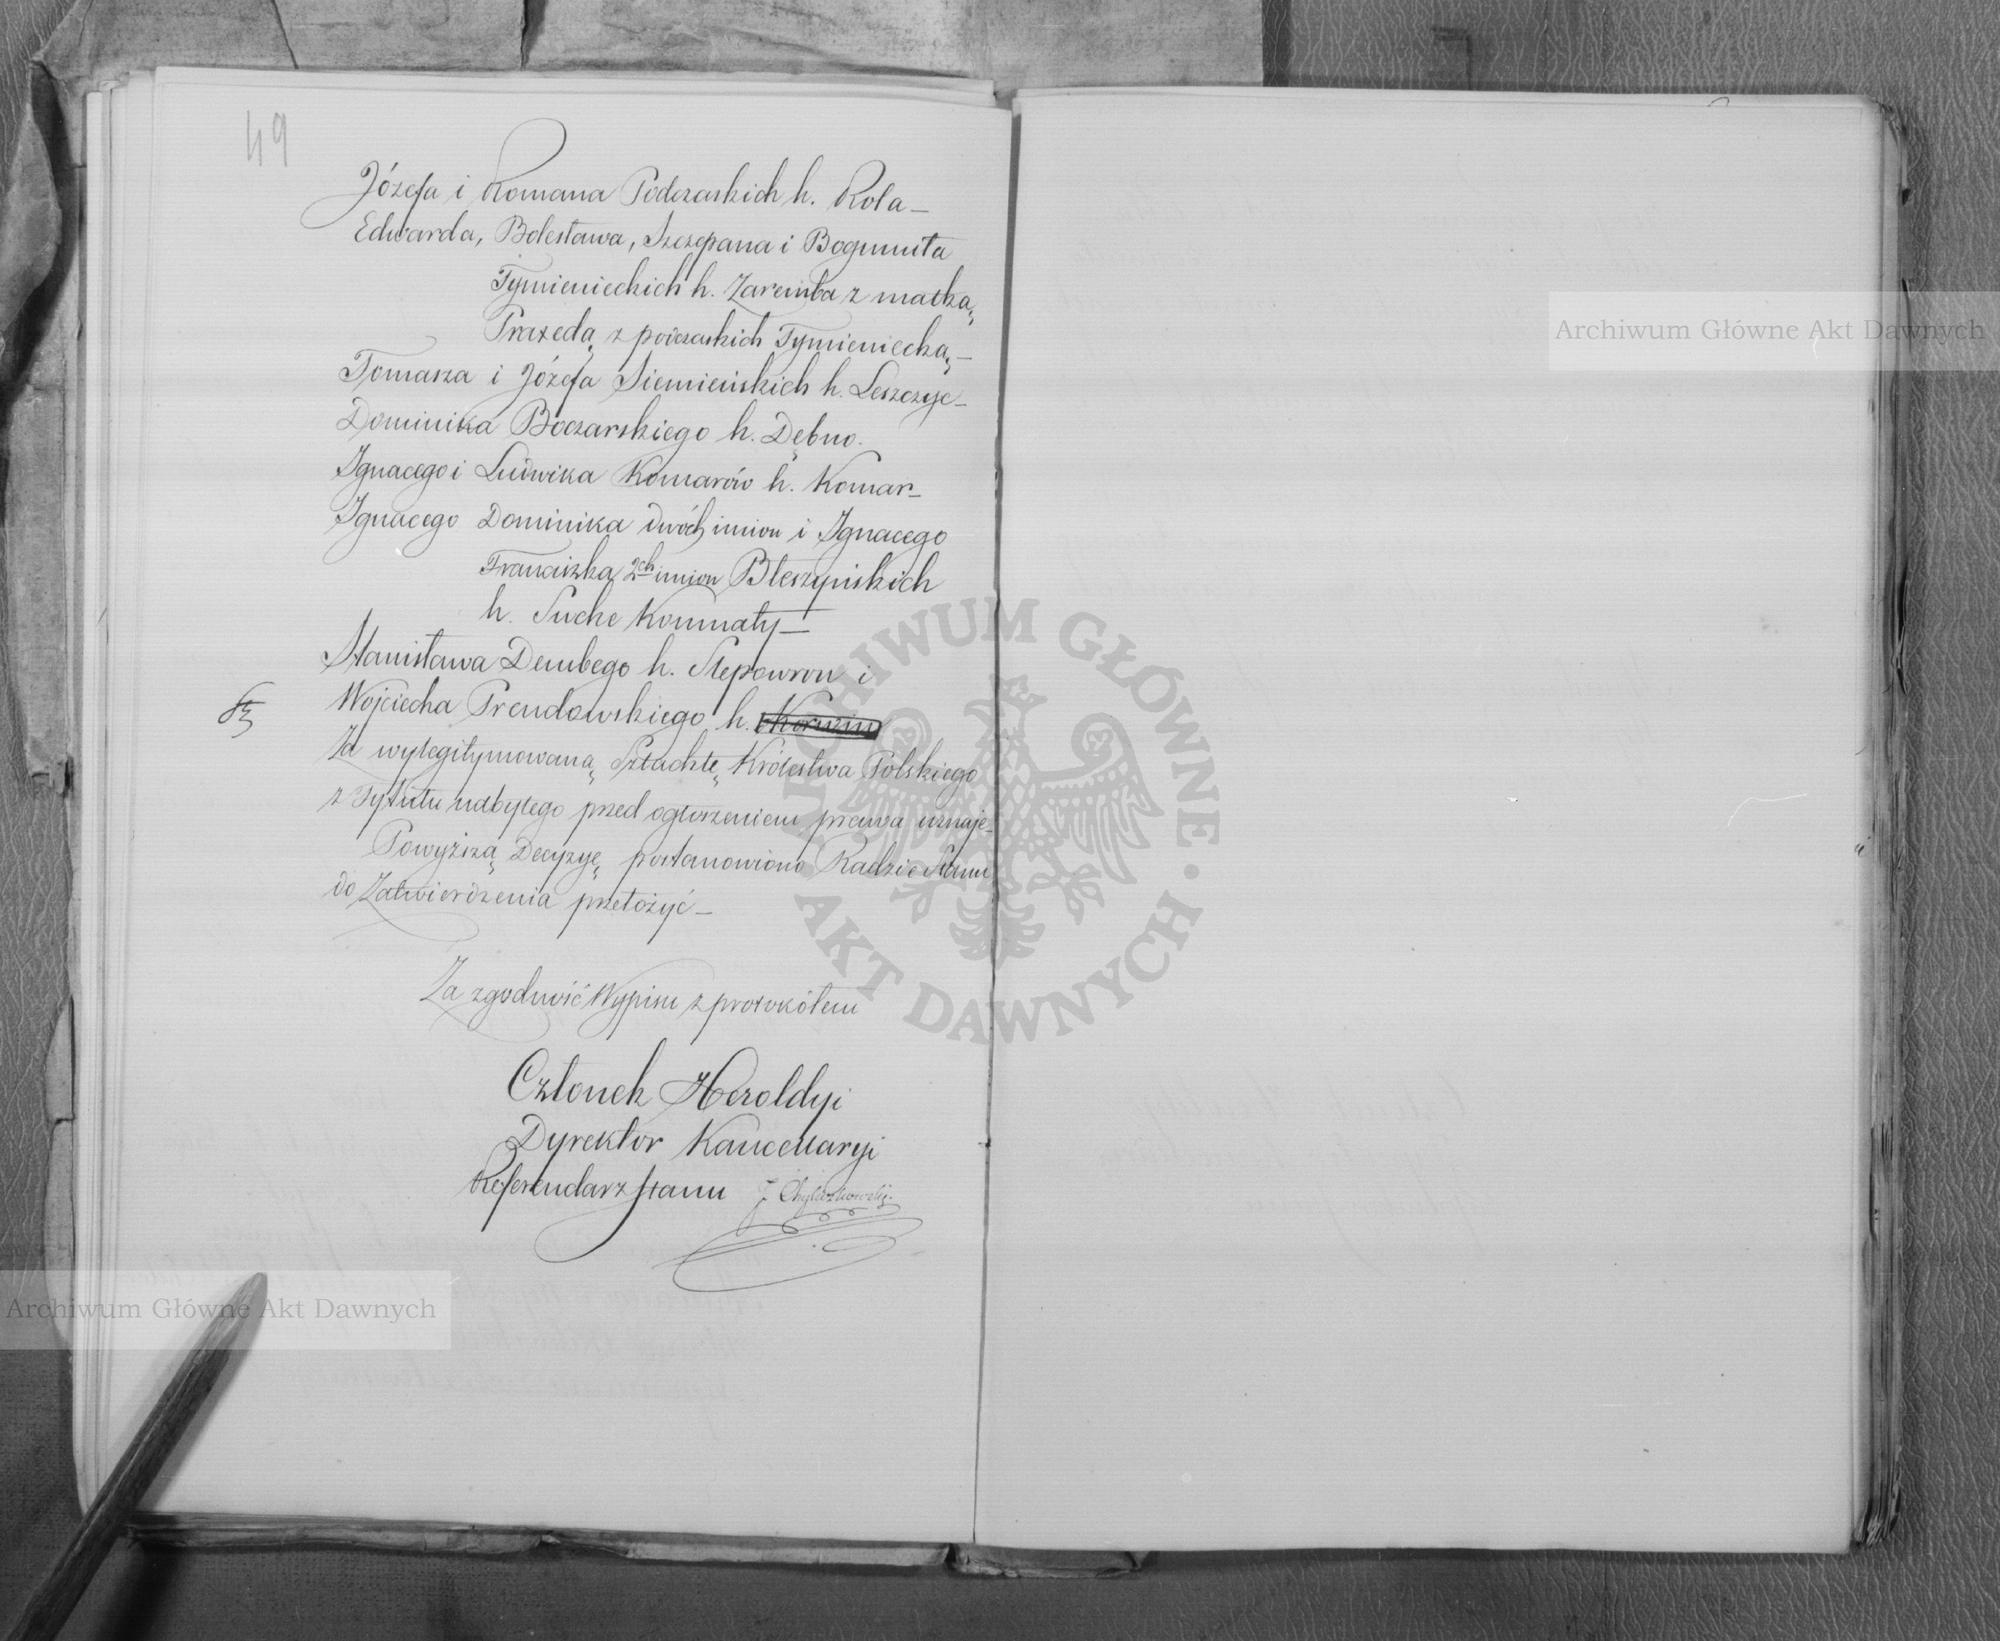 49
Józefa i Romana Podczaskich h. Rola_
Edwarda, Bolesława, Szczepana i Bogumiła
Tymienieckich h. Zaremba z matką,
Praxedą z poczaskich Tymieniecką,_
Tomasza i Józefa Siemieńskich h. Leszczyc_
Dominika Boczarskiego h. Dębno.
Ignacego i Ludwika Komarów h. Komar_
Ignacego Dominika dwóch imion i Ignacego
Franciszka 2ch imion Bleszyńskich
h. Suche Komnaty_
Stanisława Dembego h. Slepowron i
Wojciecha Prendowskiego h. Korwin
Za wylegitymowaną Szlachtę Królestwa Polskiego
z Tytułu nabytego przed ogłoszeniem prawa uznaje_
Powyższą Decyzyę postanowiono Radzie Stanu
do Zatwierdzenia przełożyć_
Za zgodność Wypisu z protokółem
Członek Heroldyi
Dyrektor Kancellaryi
Referendarz Stanu J. Chyliczkowski.
Archiwum Główne Akt Dawnych
Archiwum Główne Akt Dawnych
ARCHIWUM GŁÓWNE · AKT DAWNYCH ·